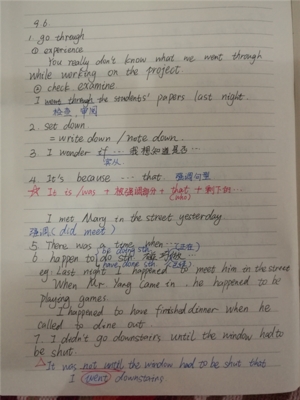 9.6
1. go through
① experience
You really don't know what we went through
while working on the project.
② check. examine
I went through the students' papers last night.
检查, 审阅
2. set down
= write down / note down.
3. I wonder if ... 我想知道是否...
宾从
4. It's because ... that 强调句型
☆ It is / was + 被强调部分 + that + 剩下的...
(who)
I met Mary in the street yesterday.
强调 (did meet)
5. There was a time when...
be doing sth
6. happen to do sth
have done sth
eg: Last night I happened to meet him in the street
When Mr Yang came in, he happened to be
playing games.
I happened to have finished dinner when he
called to dine out.
7. I didn't go downstairs until the window had to
be shut.
△ It was not until the window had to be shut that
I went downstairs.